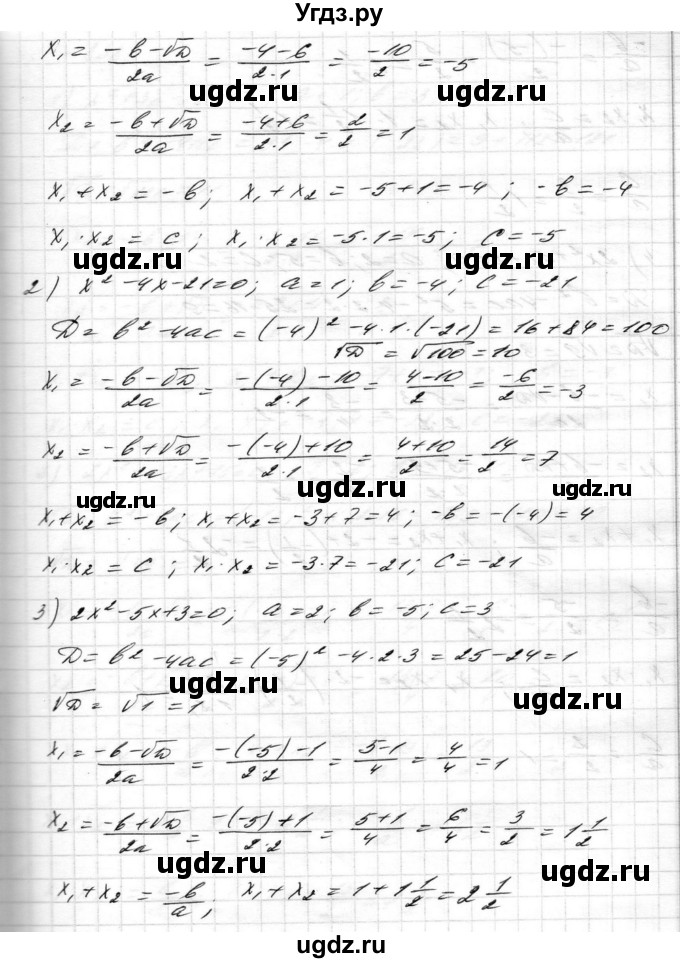 Угдз.ру
x₁ = (-b-√D)/2a = (-4-6)/(2·1) = -10/2 = -5
ugdz.ru ugdz.ru
x₂ = (-b+√D)/2a = (-4+6)/(2·1) = 2/2 = 1
ugdz.ru
x₁+x₂ = -b; x₁+x₂ = -5+1 = -4; -b = -4
ugdz.ru
x₁·x₂ = c; x₁·x₂ = -5·1 = -5; c = -5
ugdz.ru
2) x²-4x-21=0; a=1; b=-4; c=-21
D = b²-4ac = (-4)²-4·1·(-21) = 16+84 = 100
ugdz.ru ugdz.ru
√D = √100 = 10
x₁ = (-b-√D)/2a = (-(-4)-10)/(2·1) = (4-10)/2 = -6/2 = -3
ugdz.ru
x₂ = (-b+√D)/2a = (-(-4)+10)/(2·1) = (4+10)/2 = 14/2 = 7
ugdz.ru ugdz.ru
x₁+x₂ = -b; x₁+x₂ = -3+7 = 4; -b = -(-4) = 4
ugdz.ru
x₁·x₂ = c; x₁·x₂ = -3·7 = -21; c = -21
3) 2x²-5x+3=0; a=2; b=-5; c=3
ugdz.ru
D = b²-4ac = (-5)²-4·2·3 = 25-24 = 1
ugdz.ru ugdz.ru
√D = √1 = 1
x₁ = (-b-√D)/2a = (-(-5)-1)/(2·2) = (5-1)/4 = 4/4 = 1
ugdz.ru
x₂ = (-b+√D)/2a = (-(-5)+1)/(2·2) = (5+1)/4 = 6/4 = 3/2 = 1 1/2
ugdz.ru ugdz.ru
x₁+x₂ = -b/a; x₁+x₂ = 1+1 1/2 = 2 1/2
ugdz.ru